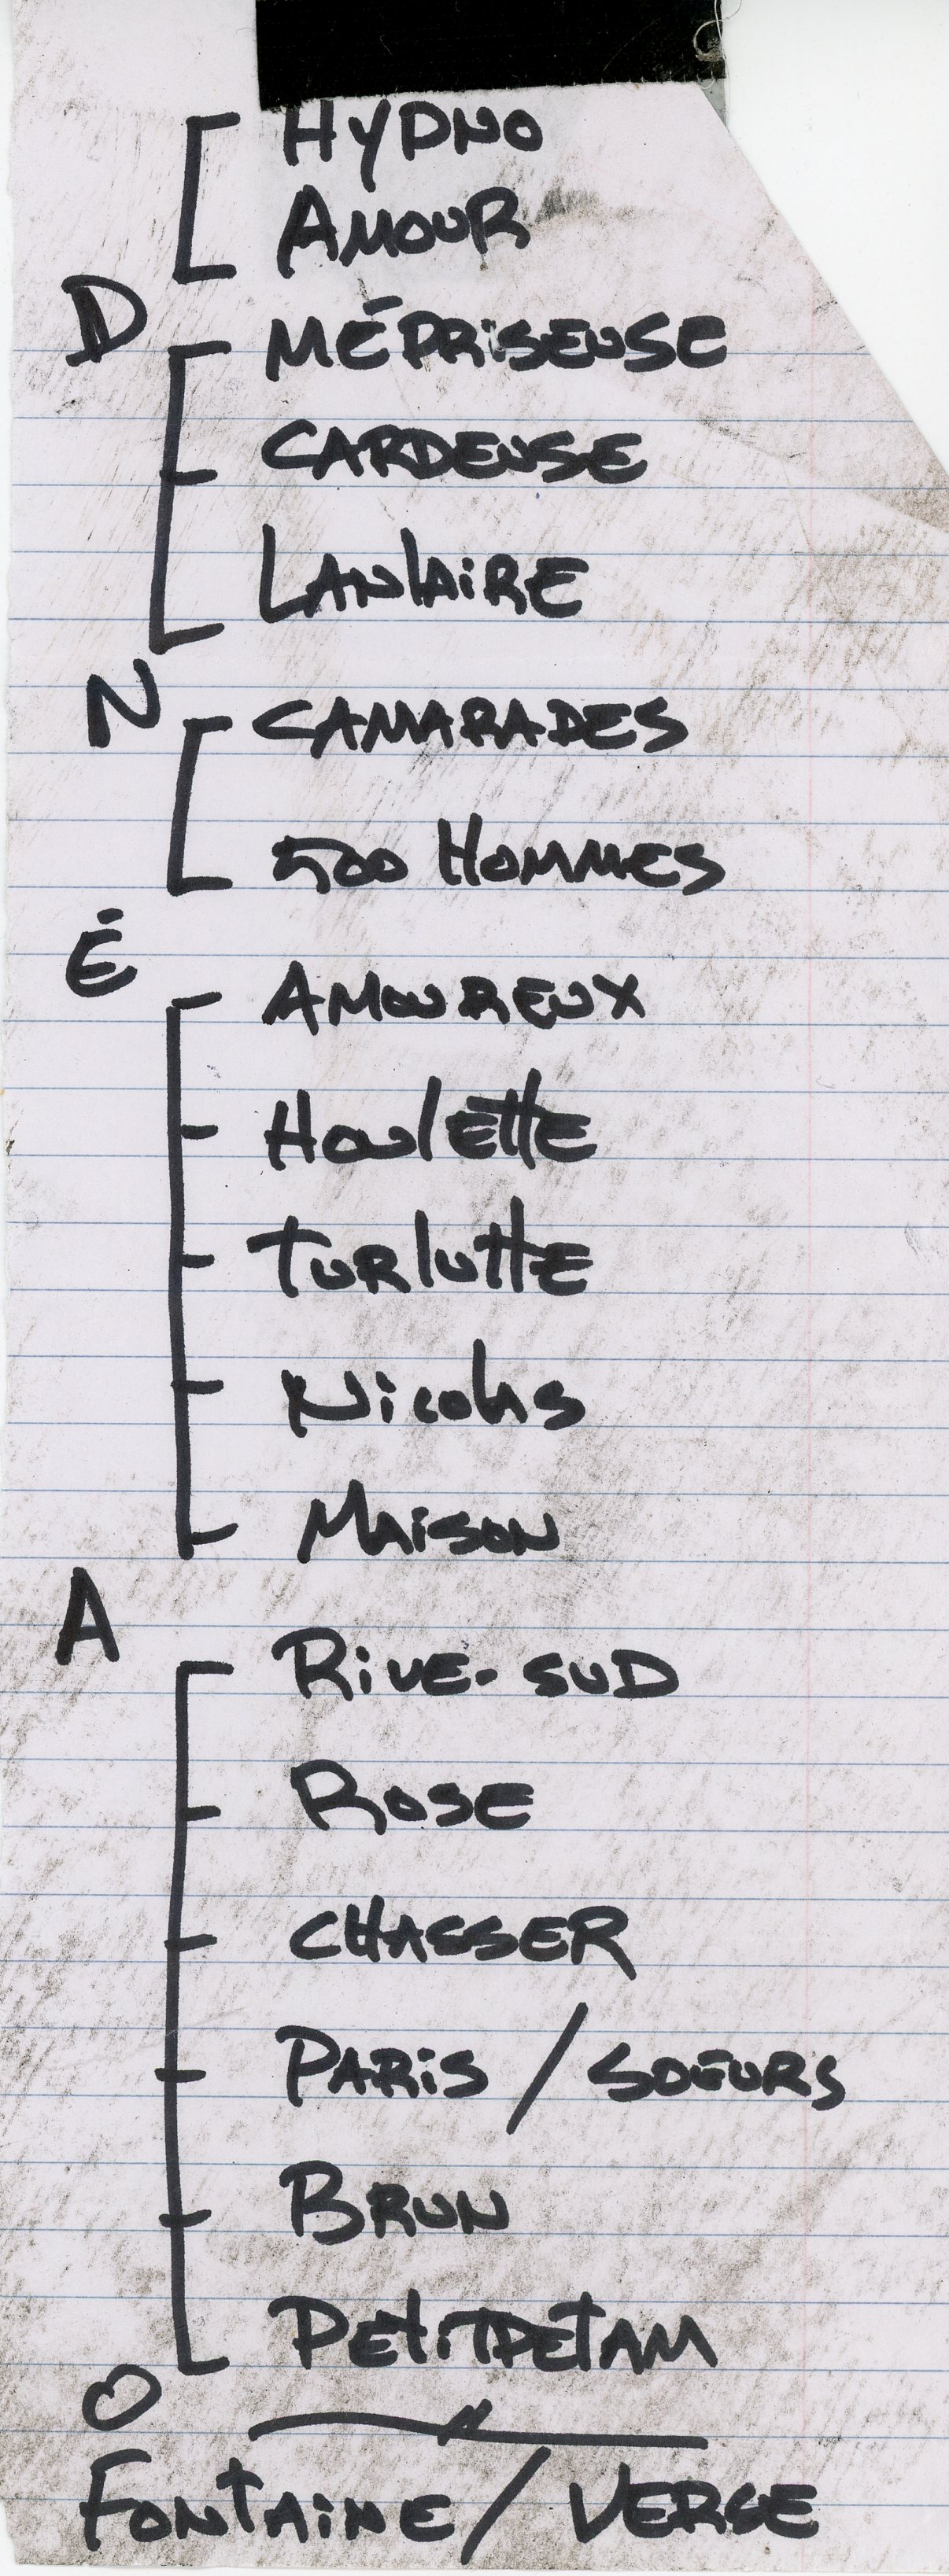 HYPNO
AMOUR
D
MÉPRiSEUSE
CARDEUSE
LANlAiRE
N
CAMARADES
500 HOMMES
É
AMOUREUX
HOulEttE
TURluttE
NicolAS
MAiSON
A
RiVE-SUD
ROSE
CHASSER
PARiS / SOEURS
BRUN
PEtitPEtAM
O
FONTAiNE / VERGE